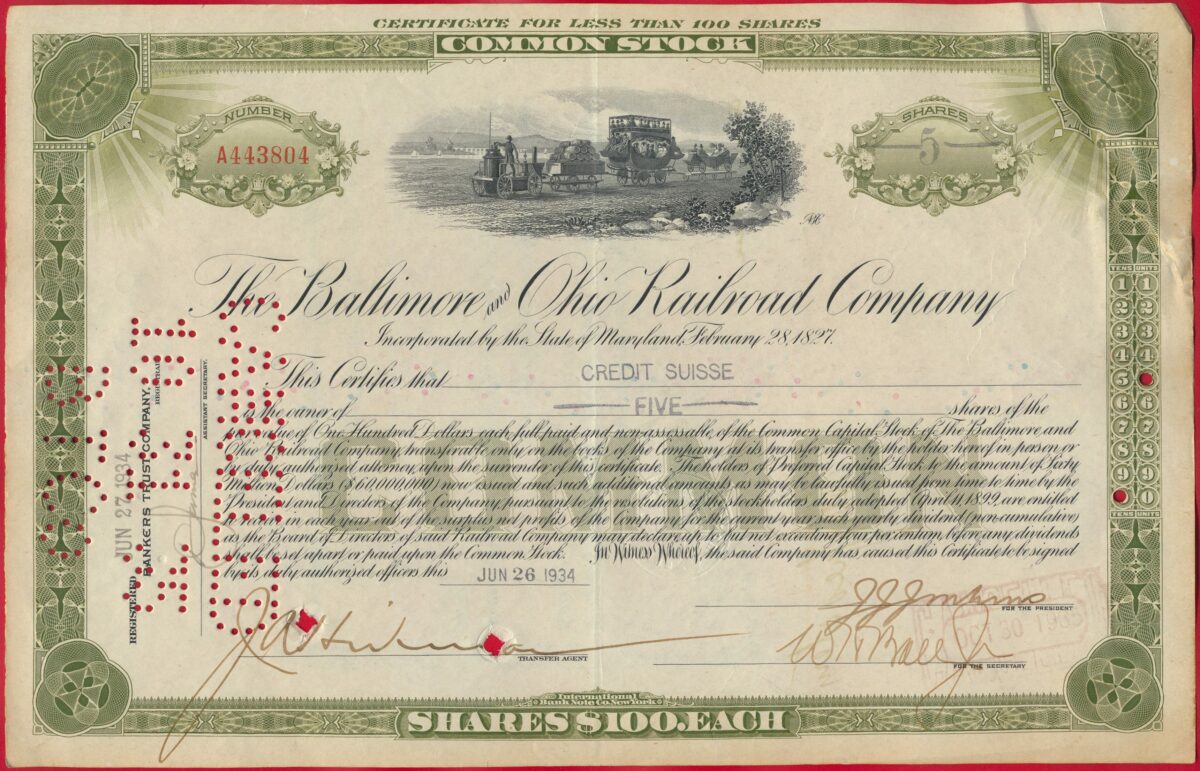 CERTIFICATE FOR LESS THAN 100 SHARES
COMMON STOCK
NUMBER
A443804
SHARES
5
The Baltimore and Ohio Railroad Company
Incorporated by the State of Maryland, February 28, 1827.
This Certifies that CREDIT SUISSE
is the owner of FIVE shares of the
par value of One Hundred Dollars each full paid and non-assessable, of the Common Capital Stock of The Baltimore and
Ohio Railroad Company, transferable only on the books of the Company at its transfer office by the holder hereof in person, or
by duly authorized attorney, upon the surrender of this certificate. The holders of Preferred Capital Stock to the amount of Sixty
Million Dollars ($60,000,000) now issued and such additional amounts as may be lawfully issued from time to time by the
President and Directors of the Company, pursuant to the resolution of the stockholders duly adopted April 18, 1899, are entitled
to receive in each year out of the surplus net profits of the Company for the current year such yearly dividend (non-cumulative)
as the Board of Directors of said Railroad Company may declare up to but not exceeding four per centum, before any dividends
shall be set apart or paid upon the Common Stock. In Witness Whereof, the said Company has caused this Certificate to be signed
by its duly authorized officers this JUN 26 1934
COMMON
TENS UNITS
1 1
2 2
3 3
4 4
5
6 6
7 7
8 8
9 9
0
TENS UNITS
REGISTERED JUN 27 1934
BANKERS TRUST COMPANY,
REGISTRAR
ASSISTANT SECRETARY.
TRANSFER AGENT
J J Jenkins
FOR THE PRESIDENT
FOR THE SECRETARY
International
Bank Note Co. New York
SHARES $100. EACH